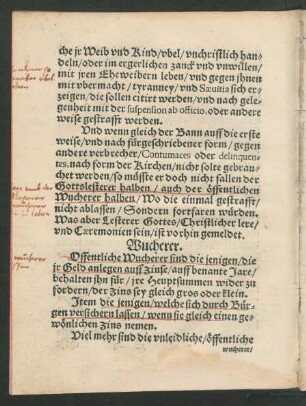 che jr Weib vnd Kind/vbel/vnchristlich han-
deln/oder im ergerlichen zanck vnd vnwillen/
mit jren Eheweibern leben/vnd gegen jhnen
mit vbermacht/tyranney/vnd Sæuitia sich er-
zeigen/die sollen citirt werden/vnd nach gele-
genheit mit der suspension ab officio, oder andere
weise gestrafft werden.
Vnd wenn gleich der Bann auff die erste
weise/vnd nach fürgeschriebener form/gegen
andere verbrecher/Contumaces oder delinquen-
tes, nach form der Kirchen/nicht solte gebrau-
chet werden/so müste er doch nicht fallen der
Gottslesterer halben/auch der öffentlichen
Wucherer halben/Wo die einmal gestrafft/
nicht ablassen/Sondern fortfaren würden.
Was aber Lesterer Gottes/Christlicher lere/
vnd Caremonien sein/ist vorhin gemeldet.
Wucherer.
Offentliche Wucherer sind die jenigen/die
jr Geld anlegen auff Zinse/auff benante Jare/
behalten jhn für/jre Heuptsummen wider zu
fordern/der Zins sey gleich gros oder klein.
Item die jenigen/welche sich durch Bür-
gen versichern lassen/wenn sie gleich einen ge-
wönlichen Zins nemen.
Viel mehr sind die vnleidliche/öffentliche
wucherer/